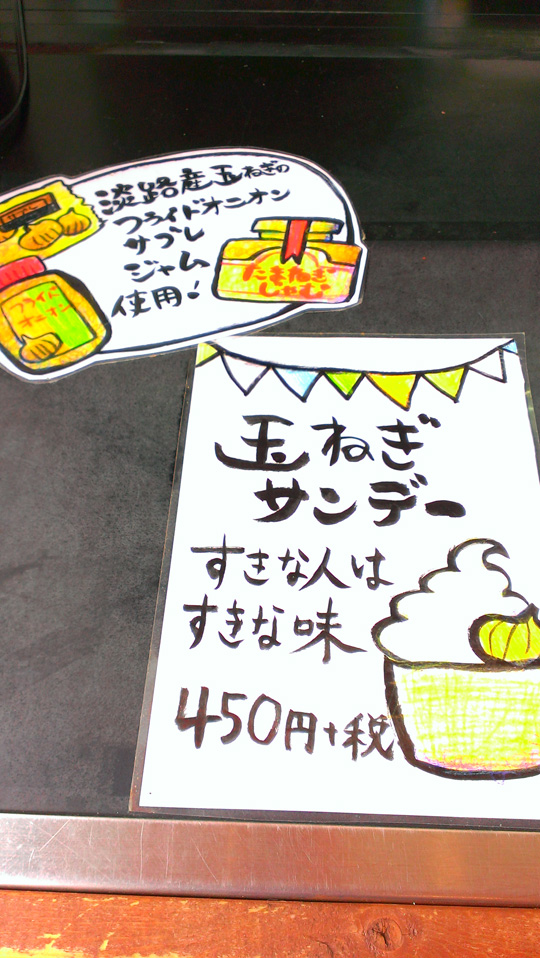 淡路産玉ねぎの
フライドオニオン
サブレ
ジャム
使用!
たまねぎ
じゃむ
フライド
オニオン
玉ねぎ
サンデー
すきな人は
すきな味
450円+税